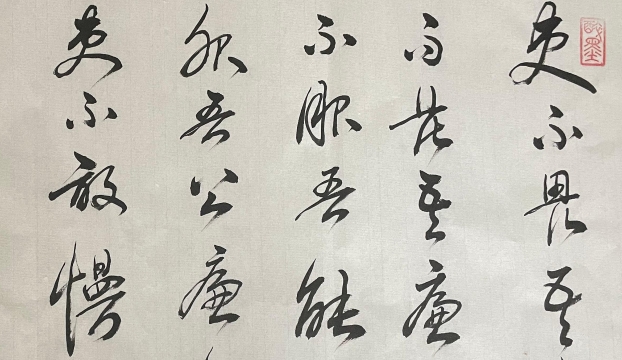 吏不畏吾
而畏吾廉
不服吾能
服吾公廉
吏不敢慢